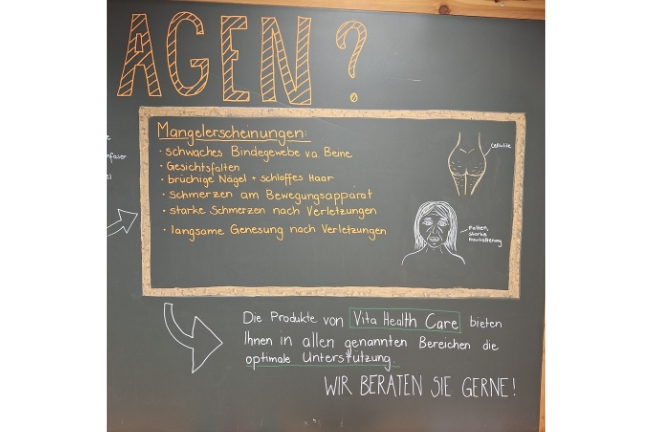 AGEN?
Mangelerscheinungen:
· schwaches Bindegewebe v.a. Beine
· Gesichtsfalten
· brüchige Nägel + schloffes Haar
· Schmerzen am Bewegungsapparat
· starke Schmerzen nach Verletzungen
· langsame Genesung nach Verletzungen
Cellulite
Falten,
starke
Die Produkte von Vita Health Care bieten
Ihnen in allen genannten Bereichen die
optimale Unterstützung.
WIR BERATEN SIE GERNE!